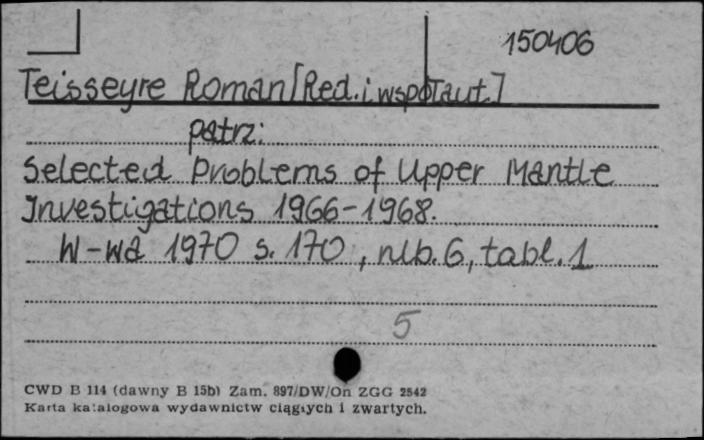 150406
Teisseyre Roman [Red. i współaut.]
patrz:
Selected Problems of Upper Mantle
Investigations 1966-1968.
W-wa 1970 s. 170, nlb. 6, tabl. 1
5
CWD B 114 (dawny B 15b) Zam. 897/DW/On ZGG 2542
Karta katalogowa wydawnictw ciągłych i zwartych.